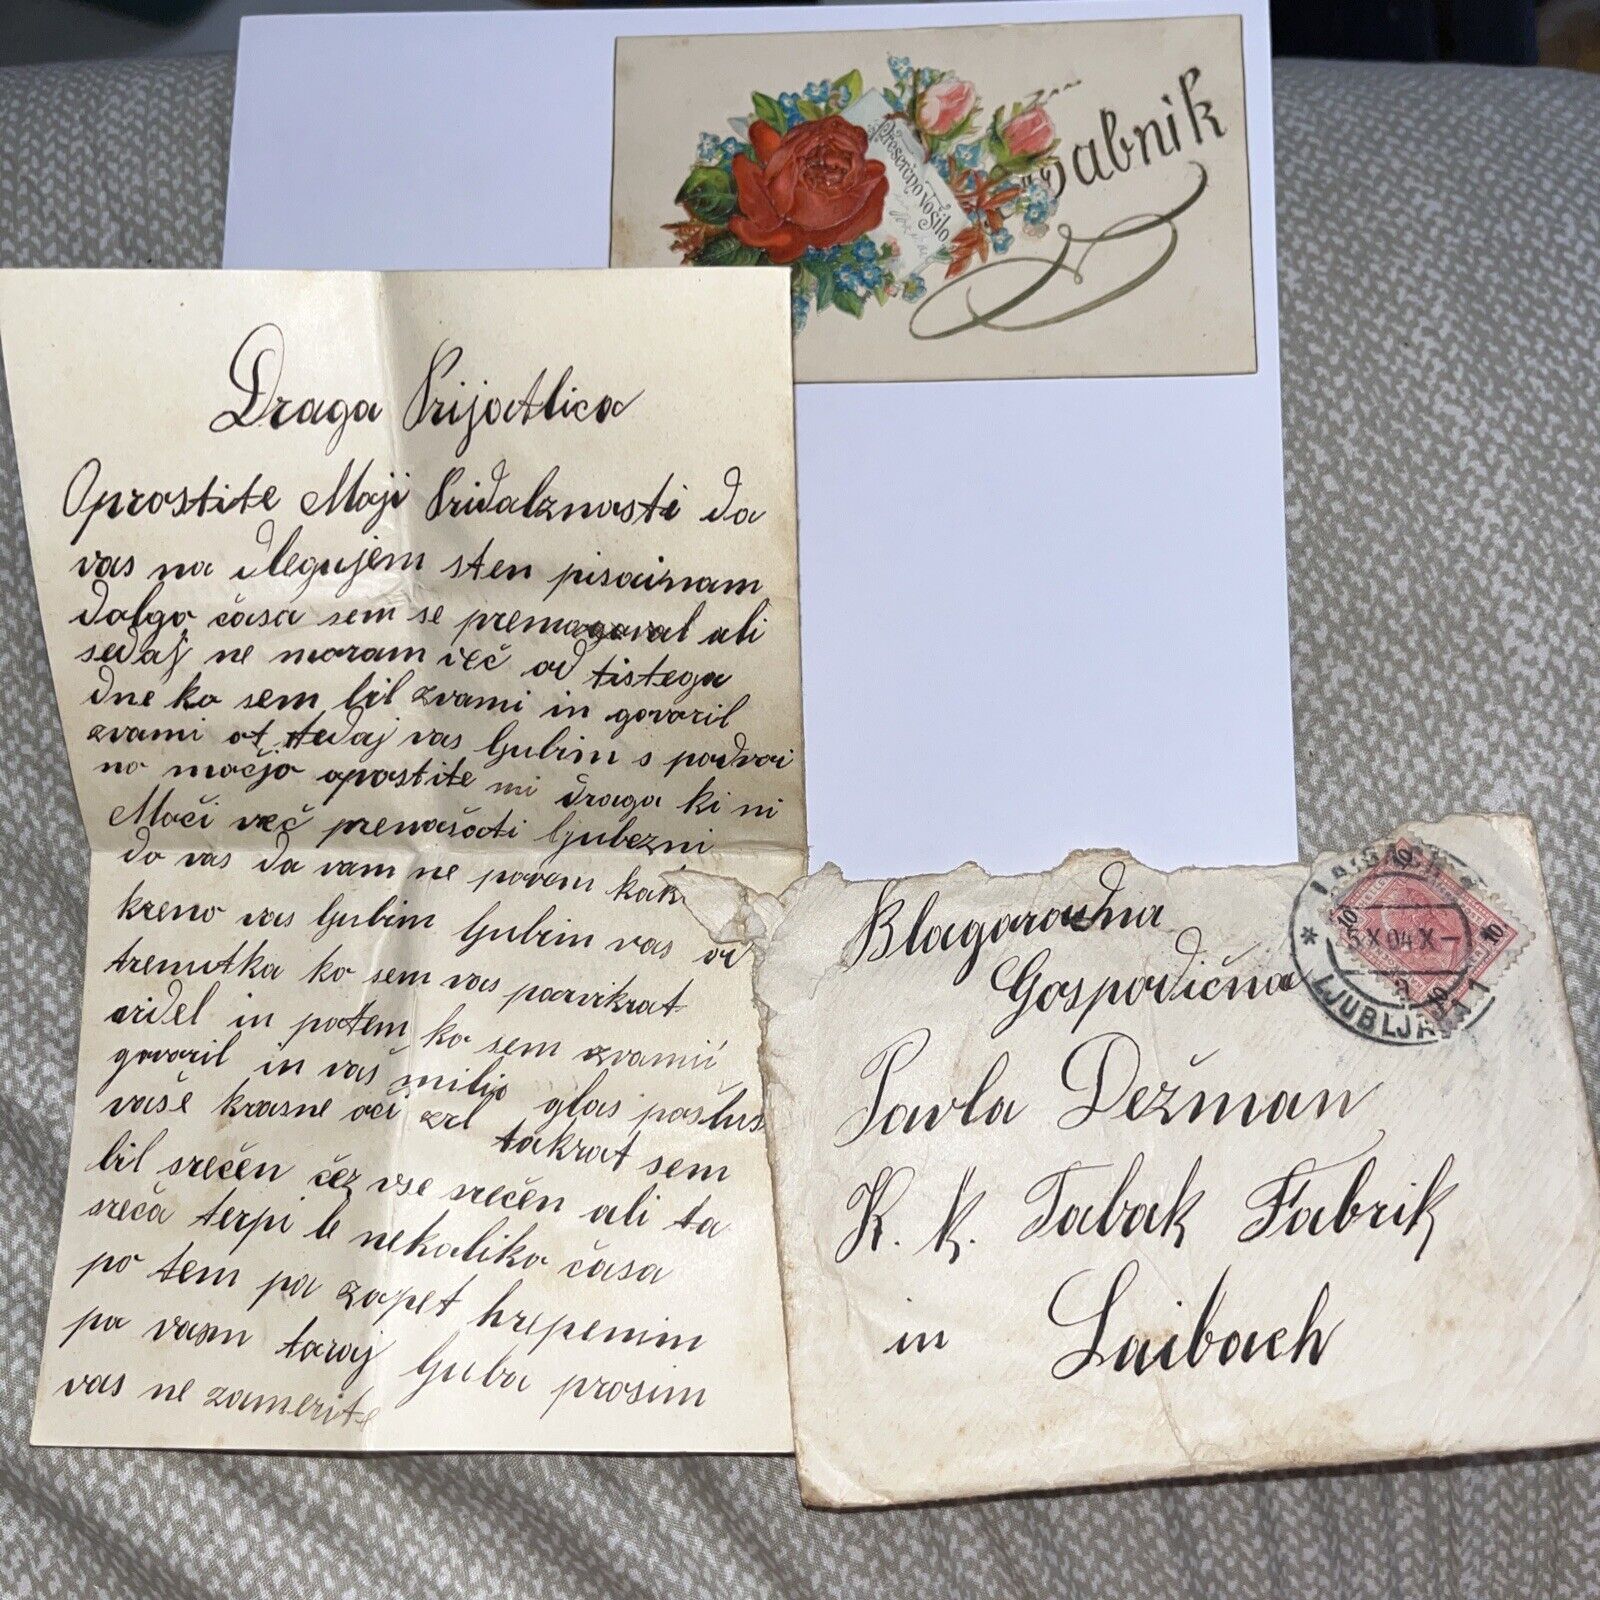 Draga Prijatlica
Oprostite Moji Pridalznasti da
vas na dlegujem sten pisainam
dalgo časa sem se premagoval ali
sedaj ne moram več od tistega
dne ko sem bil zvami in govoril
zvami ot tedaj vas ljubim s podvoi
no močjo oprostite mi draga ki ni
Moči več prenašati ljubezni
do vas da vam ne povem kak
kreno vas ljubim ljubim vas od
trenutka ko sem vas parvikrat
videl in potem ko sem zvami
govoril in vaš milio glas poslus
vaše krasne oči zrl takrat sem
bil srečen čez vse srečen ali ta
sreča terpi le nekaliko časa
po tem pa zapet hrepenim
pa vasm taraj ljuba prosim
vas ne zamerite
Preserčno vošilo
Žabnik
Blagorodna
Gospodična
Pavla Dežman
K. k. Tabak Fabrik
in Laibach
LAIBACH 1
5 X 04 X-
LJUBLJANA 1
10
10
10